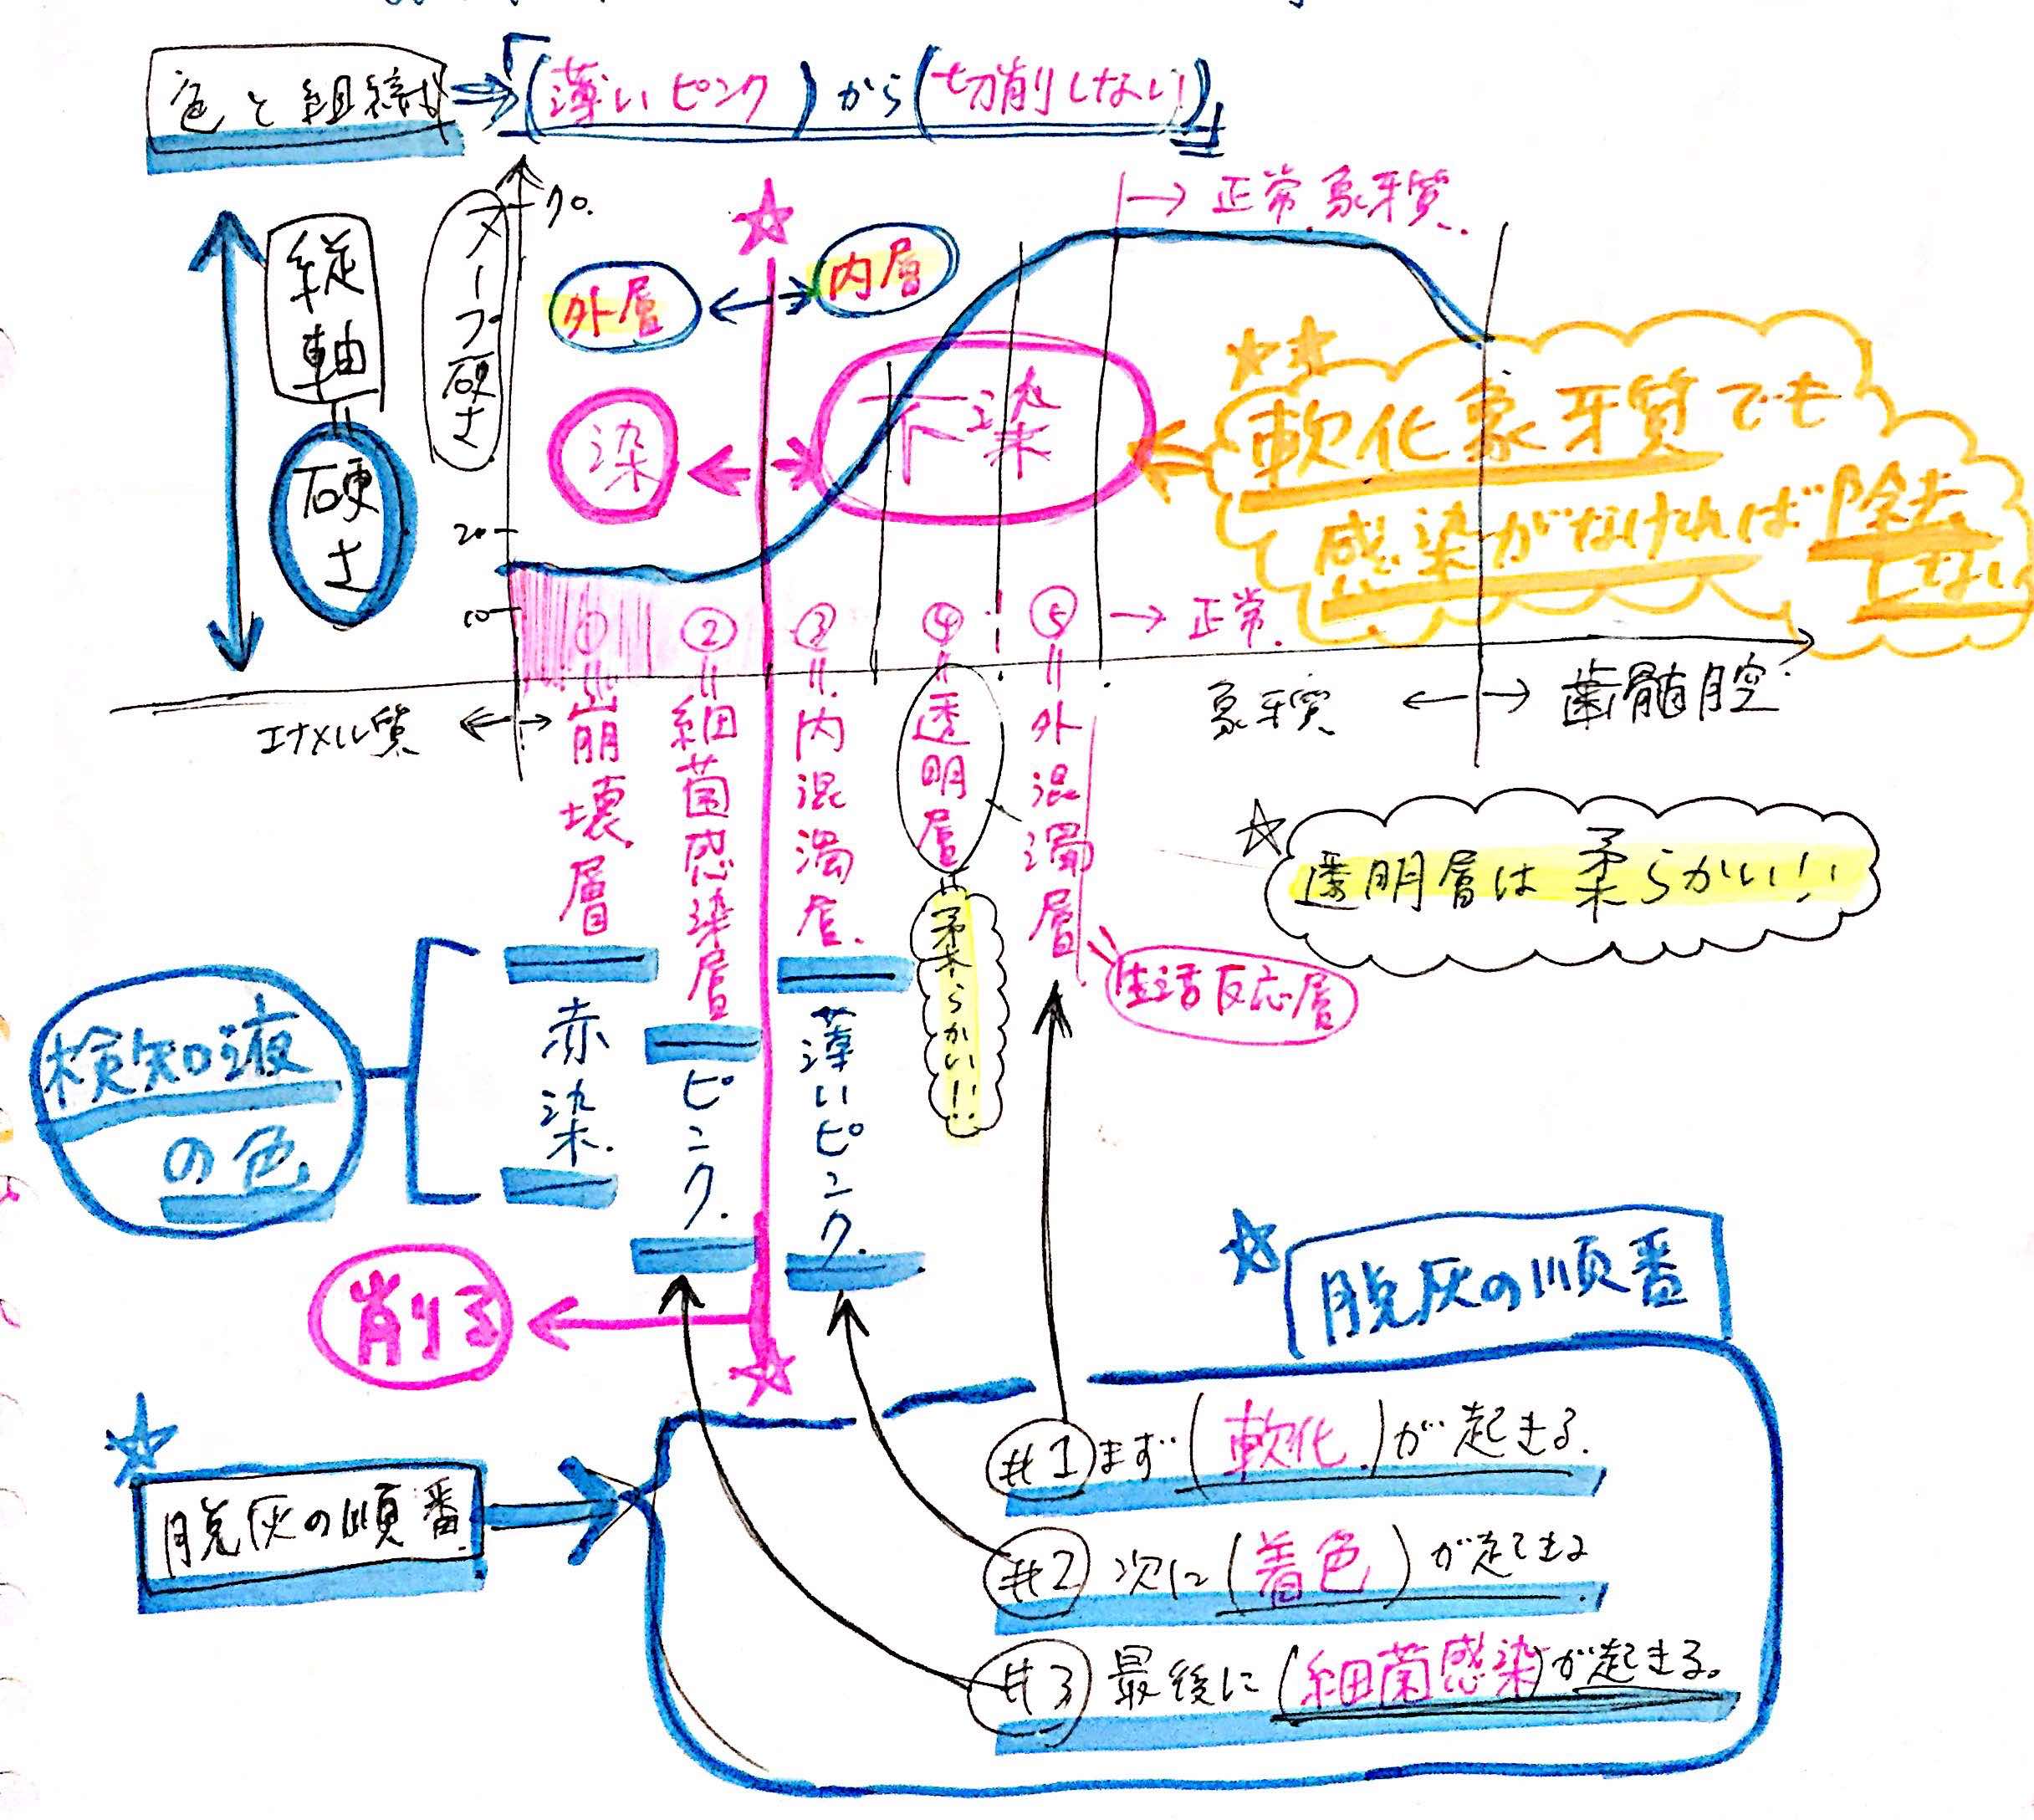 色と組織は
「(薄いピンク)から(切削しない)」
縦軸
=
硬さ
ヌープ硬さ
70.
20
10
外層
内層
染
不染
→正常象牙質.
軟化象牙質でも
感染がなければ除去
しない
→正常.
エナメル質
象牙質
歯髄腔
①=崩壊層
②=細菌感染層
③=内混濁层.
④=透明層=柔らかい!!
⑤=外混濁層
生活反応層
透明層は柔らかい!!
検知液
の色
赤染.
ピンク.
薄いピンク.
削る
脱灰の順番
脱灰の順番
#1 まず(軟化.)が起きる.
#2 次に(着色)が起きる
#3 最後に(細菌感染)が起きる。